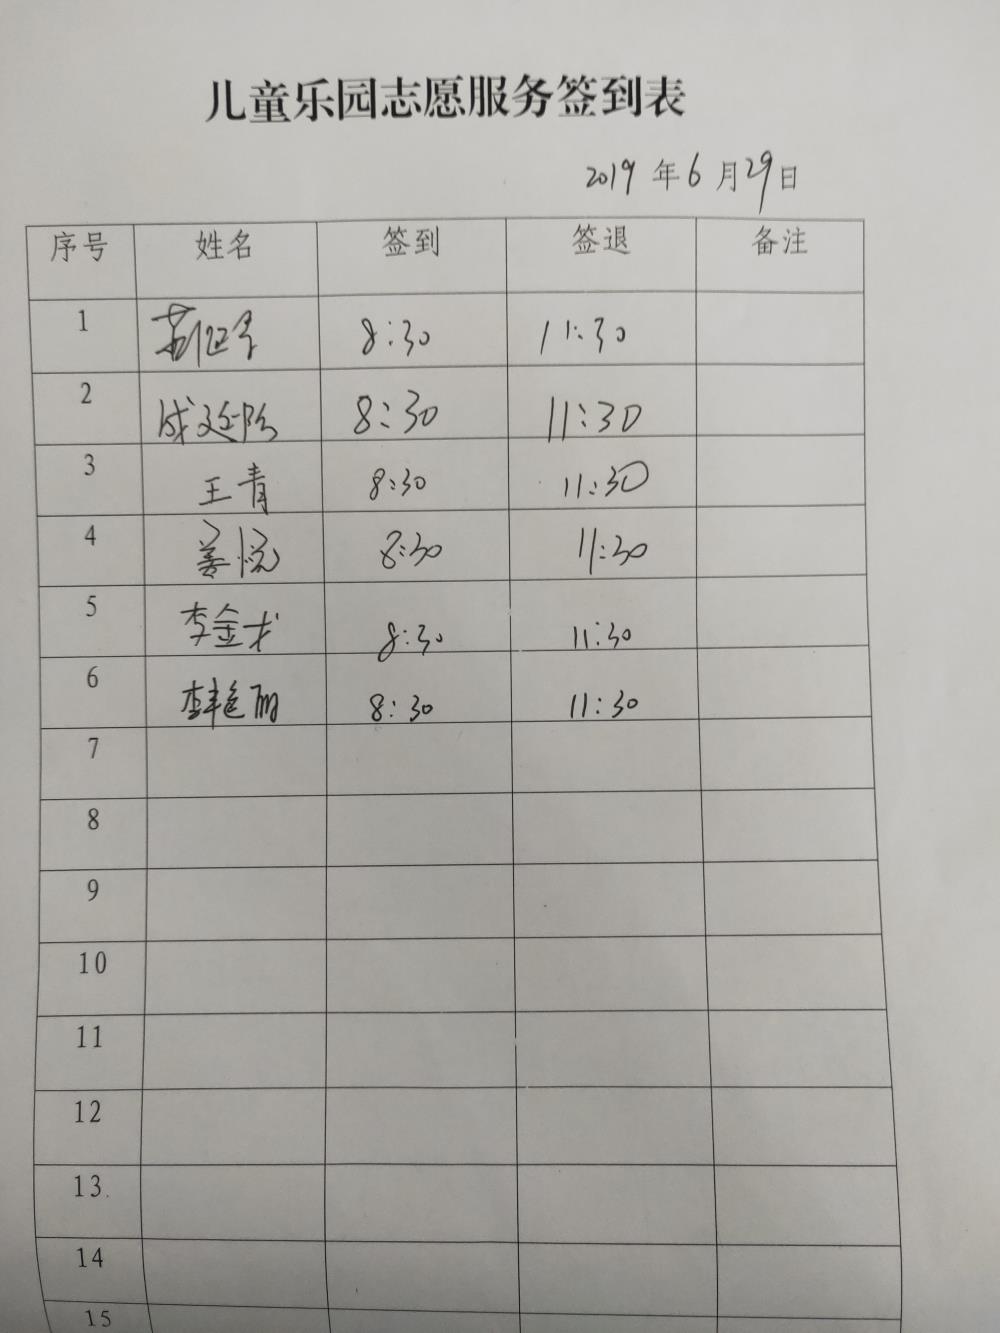 儿童乐园志愿服务签到表
2019 年 6 月 29 日
序号 姓名 签到 签退 备注
1 8:30 11:30
2 8:30 11:30
3 王青 8:30 11:30
4 姜悦 8:30 11:30
5 李金才 8:30 11:30
6 李艳丽 8:30 11:30
7
8
9
10
11
12
13
14
15